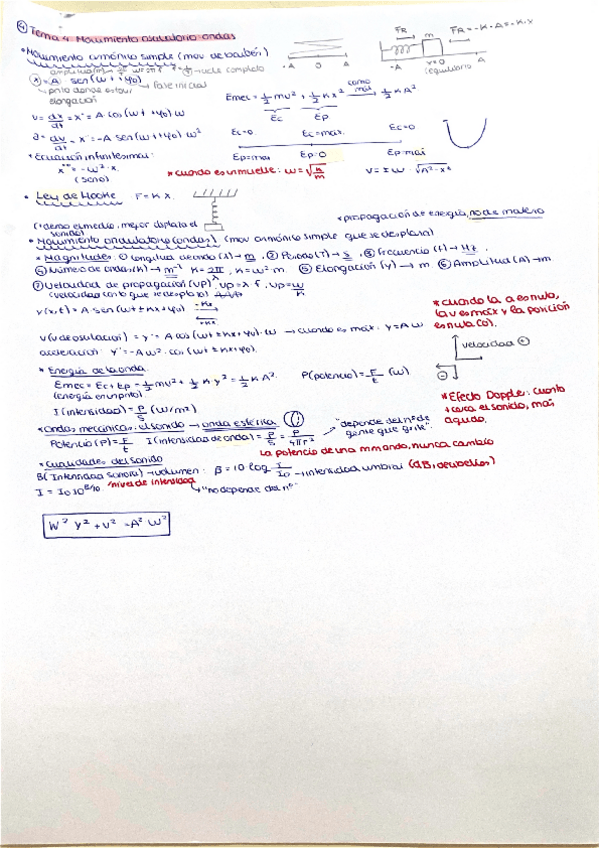 ④ Tema 4: Movimiento ondulatorio ondas
* Movimiento armónico simple (mov de vaivén)
x = A sen (wt + φ0)
→ fase inicial
elongación
FR m FR = -K·A = -K·x
-A O A -A Y=0 A
(equilibrio)
Emec = 1/2 mv² + 1/2 Kx² como máx → 1/2 KA²
Ec Ep
v = dx/dt = x' = A cos (wt + φ0) w
a = dv/dt = x'' = -A sen (wt + φ0) w²
Ec=0 Ec=máx. Ec=0
Ep=máx Ep=0 Ep=máx
* Ecuación infinitesimal:
x'' = -w²·x.
* cuando es un muelle: w = √K/m
v = ± w √A²-x²
* Ley de Hooke F = K·x
* propagación de energía, no de materia
* Movimiento ondulatorio (ondas) (mov armónico simple que se desplaza)
* Magnitudes: ① longitud de onda (λ) → m, ② Período (T) → s, ③ Frecuencia (f) → Hz.
④ Número de onda (K) → m⁻¹ K = 2π/λ, K = w²·m. ⑤ Elongación (y) → m. ⑥ Amplitud (A) → m
⑦ Velocidad de propagación (vp). vp = λ·f, vp = w/K
(velocidad con la que se desplaza)
y(x,t) = A sen (wt ± Kx + φ0)
* cuando la a es nula,
la v es máx y la posición
es nula (0).
v(v de oscilación) = y' = A cos (wt ± Kx + φ0)·w → cuando es máx: y = A w
aceleración: y'' = -A w². cos (wt ± Kx + φ0).
velocidad
* Energía de la onda.
Emec = Ec + Ep = 1/2 mv² + 1/2 K y² = 1/2 K A².
(energía en un pnto).
P(potencia) = E/t (W)
I (intensidad) = P/S (W/m²)
* Efecto Doppler: cuanto
+ cerca el sonido, más
agudo.
* Ondas mecánicas: el sonido → onda esférica
Potencia (P) = E/t I (intensidad de onda) = P/S = P/4πr²
"depende del nº de
gente que grite".
La potencia de una m onda, nunca cambia
* Cualidades del sonido
B (Intensidad sonora) → volumen: β = 10 log I/I0 → intensidad umbral (dB, decibelios)
I = I0 10^β/10 nivel de intensidad
"no depende del nº"
w² y² + v² = A² w²